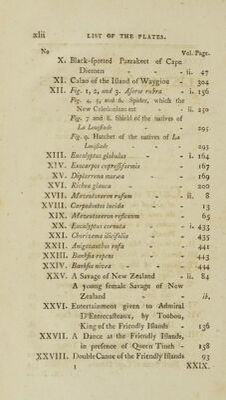 xlii LIST OF THE PLATES.
No Vol. Page.
X. Black-spotted Parrakeet of Cape
Diemen - - - ii. 47
XI. Calao of the Island of Waygiou - 304
XII. Fig. 1, 2, and 3. Aseroe rubra - i. 156
Fig. 4, 5, and 6. Spider, which the
New Caledonians eat - ii. 240
Fig. 7 and 8. Shield of the natives of
La Louisiade - - 295
Fig. 9. Hatchet of the natives of La
Louisiade - - 293
XIII. Eucalyptus globulus - - i. 164
XIV. Exocarpos cupressiformis - 167
XV. Diplarrena moræa - - 169
XVI. Richea glauca - - 200
XVII. Mazeutoxeron rufum - - ii. 8
XVIII. Carpodontos lucida - - 13
XIX. Mazeutoxeron reflexum - 65
XX. Eucalyptus cornuta - - i. 433
XXI. Chorizema ilicifolia - - 435
XXII. Anigozanthos rufa - - 441
XXIII. Banksia repens - - 443
XXIV. Banksia nivea - - - 444
XXV. A Savage of New Zealand - ii. 84
A young female Savage of New
Zealand - - - ib.
XXVI. Entertainment given to Admiral
D'Entrecasteaux, by Toobou,
King of the Friendly Islands - 136
XXVII. A Dance at the Friendly Islands,
in presence of Queen Tineh - 158
XXVIII. Double Canoe of the Friendly Islands 93
1 XXIX.